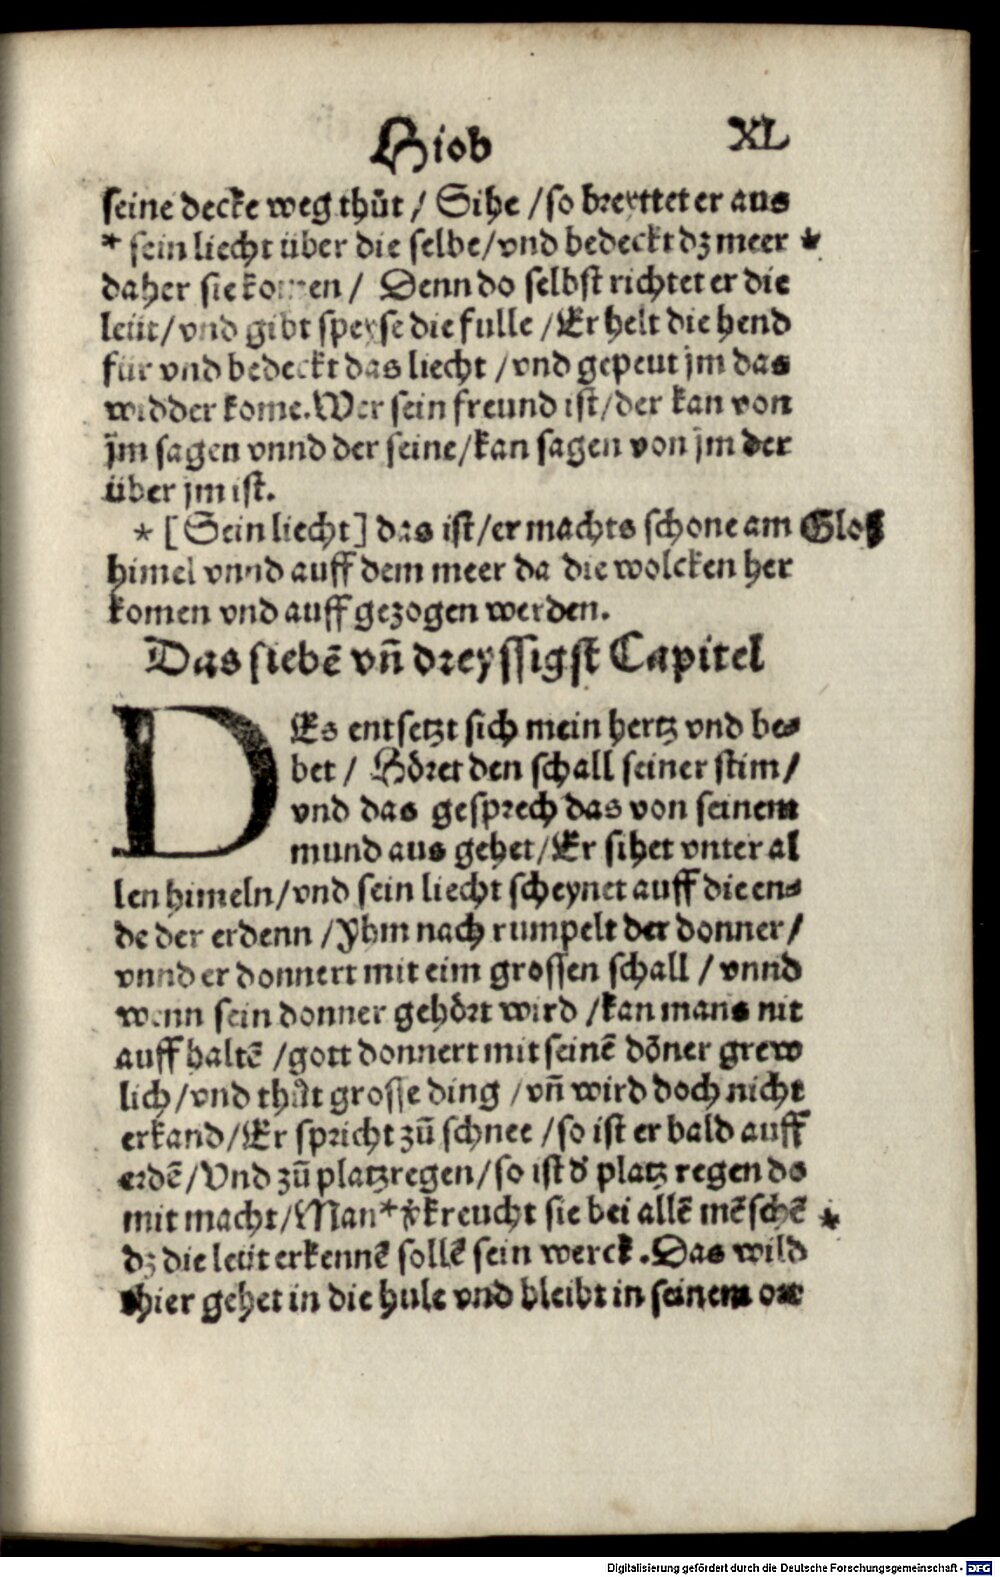 Hiob XL
seine decke weg thůt / Sihe /so breyttet er aus
* sein liecht über die selbe/vnd bedeckt dz meer *
daher sie komen / Denn do selbst richtet er die
leüt/vnd gibt speyse die fulle /Er helt die hend
für vnd bedeckt das liecht /vnd gepeut jm das
widder kome.Wer sein freund ist/der kan von
jm sagen vnnd der seine/kan sagen von jm der
über jm ist.
* [Sein liecht] das ist/er machts schone am Gloß
himel vnnd auff dem meer da die wolcken her
komen vnd auff gezogen werden.
Das siebē vñ dreyssigst Capitel
DEs entsetzt sich mein hertz vnd be⸗
bet / Höret den schall seiner stim/
vnd das gesprech das von seinem
mund aus gehet/Er sihet vnter al
len himeln/vnd sein liecht scheynet auff die en⸗
de der erdenn /Yhm nach rumpelt der donner/
vnnd er donnert mit eim grossen schall / vnnd
wenn sein donner gehört wird /kan mans nit
auff haltē /gott donnert mit seinē dōner grew
lich/vnd thůt grosse ding /vñ wird doch nicht
erkand/Er spricht zū schnee /so ist er bald auff
erdē/Vnd zū platzregen/so ist d' platz regen do
mit macht/Man* v'kreucht sie bei allē mēschē *
dz die leüt erkennē sollē sein werck.Das wild
thier gehet in die hule vnd bleibt in seinem ort
Digitalisierung gefördert durch die Deutsche Forschungsgemeinschaft - DFG